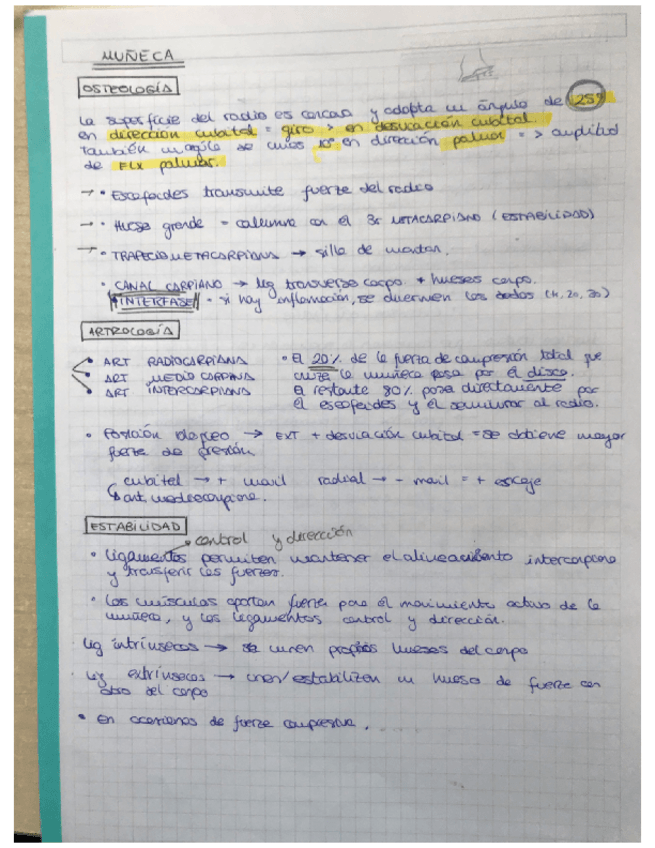 MUÑECA
OSTEOLOGÍA
La superficie del radio es concava y adopta un ángulo de 25º
en dirección cubital = giro > en desviación cubital
También un ángulo de unos 10º en dirección palmar => amplitud
de FLX palmar.
→ • Escafoides transmite fuerza del radio
→ • Hueso grande = columna con el 3er METACARPIANO (ESTABILIDAD)
→ • TRAPECIOMETACARPIANA → silla de montar.
• CANAL CARPIANO → lig transverso carpo + huesos carpo.
INTERFASE = si hay inflamación, se duermen los dedos (1º, 2º, 3º)
ARTROLOGÍA
• ART RADIOCARPIANA
• ART MEDIO CARPIANA
• ART INTERCARPIANA
• El 20% de la fuerza de compresión total que
cruza la muñeca pasa por el disco.
El restante 80% pasa directamente por
el escafoides y el semilunar al radio.
• Posición bloqueo → EXT + desviación cubital = se obtiene mayor
fuerza de presión
cubital → + movil radial → - movil = + encaje
art. mediocarpiana.
ESTABILIDAD
control y dirección
• Ligamentos permiten mantener el alineamiento intercarpiano
y transferir las fuerzas.
• Los músculos aportan fuerza para el movimiento activo de la
muñeca, y los ligamentos control y dirección.
Lig intrínsecos → se unen propios huesos del carpo
Lig extrínsecos → unen/estabilizan un hueso de fuerza con
otro del carpo
• En ocasiones de fuerza compresiva.